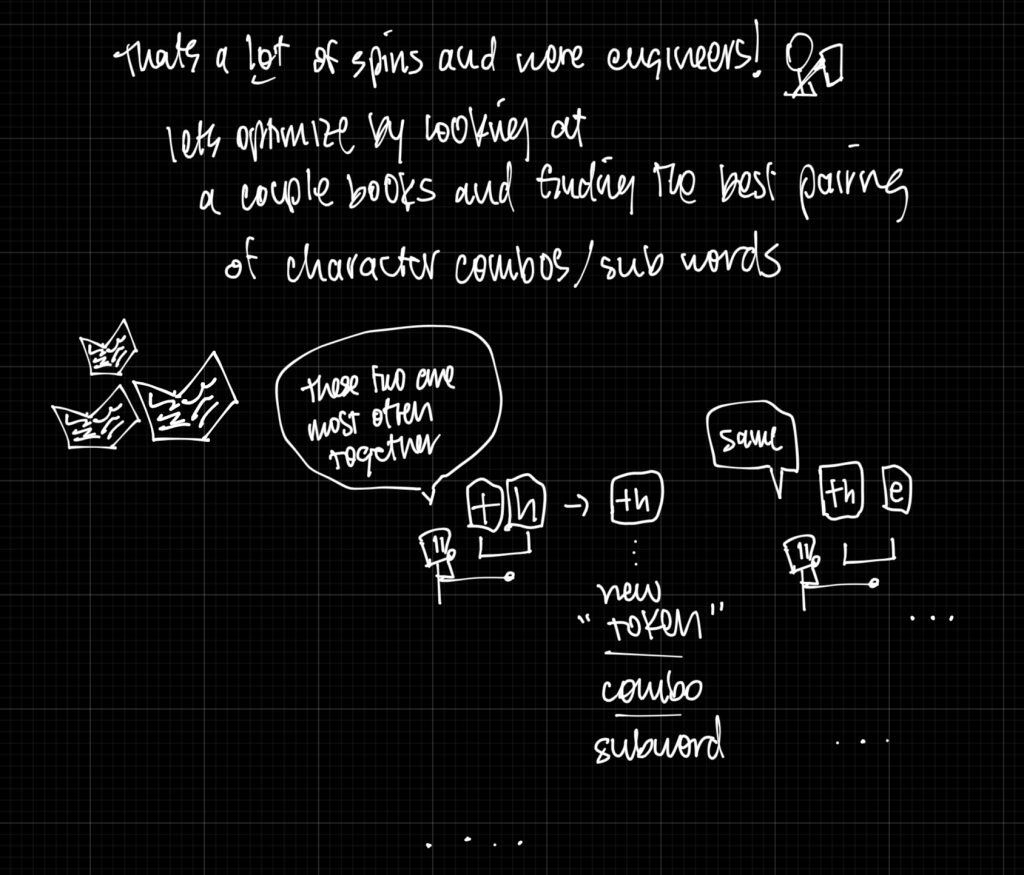 thats a lot of spins and were engineers!
lets optimize by looking at
a couple books and finding the best pairing
of character combos/sub words
these two are
most often
together
t h → th
same
th e
new
"token"
combo
subword